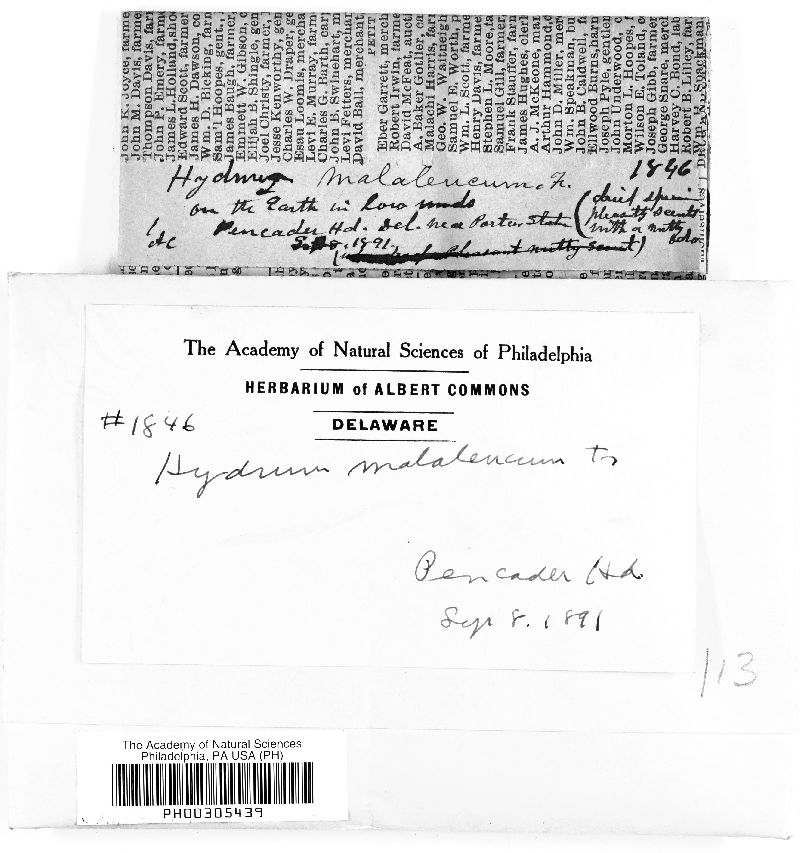 John K. Joyce, farme
John M. Davis, farme
Thompson Davis, far
John P. Emery, farme
James L. Holland, sho
Edward Scott, farmer
James H. Dawson, co
Wm. D. Bicking, farm
Sam'l Hoopes, gent.,
James Baugh, farmer,
Emmett J. Gibson, c
Elijah Shingle, gen
Joel Christy, farmer,
Jesse Kenworthy, ge
Charles W. Draper, ge
Esau Loomis, mercha
Levi E. Murray, farm
Charles C. Baen, car
John B. Swinehart, m
Levi Fetters, merchan
David Ball, merchant,
PETIT
Eber Garrett, merch
Robert Irwin, farme
David McFeat, auct
A. Baker Gotlier, ca
Malachi Harris, farm
Geo. W. Waitneigh
Samuel E. Worth, p
Wm. L. Scott, farme
Henry Davis, farme
Stephen Moore, ta
Samuel Gill, farmer,
Frank Stauffer, farn
James Hughes, clerk
A. J. McKeone, ma
Arthur Harmond, c
John D. Miller, mer
Wm. Speakman, bu
John B. Caldwell, fa
Ellwood Burns, harn
Joseph Pyle, gentlen
John Underwood, c
Morton L. Hoopes, f
Wilson E. Toland, c
Joseph Gibb, farmer
George Snare, merch
Harvey C. Bond, lab
Robert B. Wiley, far
Wm. N. Spackman,
1846
Hydnum malaleucum, Fr.
on the Earth in low woods
Pencader Hd. Del. near Porter Station
Sep 8. 1891.
(dried specim
pleasantly scented
with a nutty
odor
pleasant nutty scent)
The Academy of Natural Sciences of Philadelphia
HERBARIUM of ALBERT COMMONS
DELAWARE
#1846
Hydnum malaleucum Fr
Pencader Hd.
Sep 8. 1891
113
The Academy of Natural Sciences
Philadelphia, PA USA (PH)
PH00305439